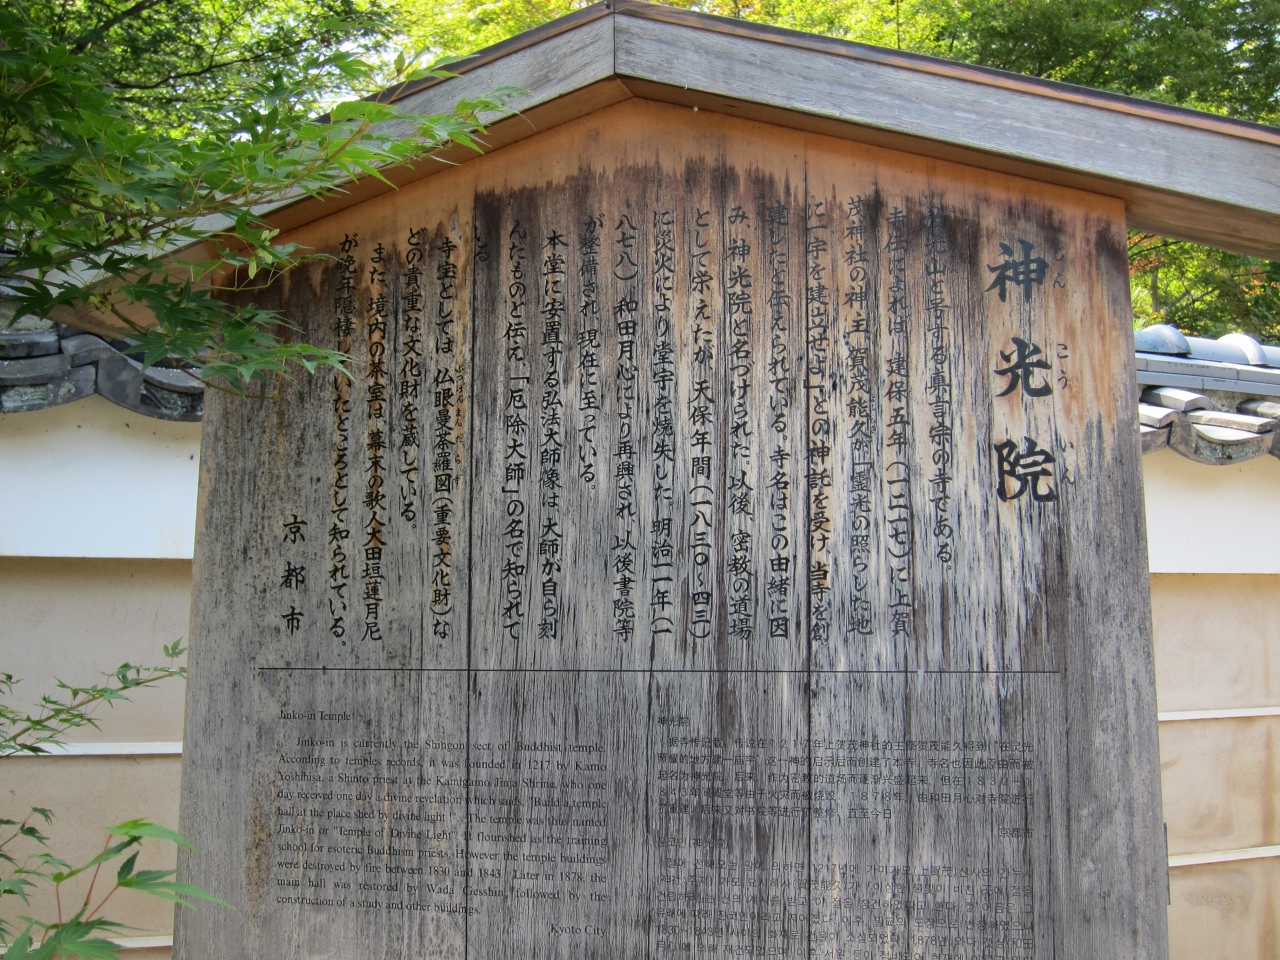 神光院
じんこういん
放光山と号する真言宗の寺である。
寺伝によれば、建保五年(一二一七)に上賀
茂神社の神主、賀茂能久が「霊光の照らした地
に一宇を建立せよ」との神託を受け、当寺を創
建したと伝えられている。寺名はこの由緒に因
み、神光院と名づけられた。以後、密教の道場
として栄えたが、天保年間(一八三〇~四三)
に災火により堂宇を焼失した。明治一一年(一
八七八)、和田月心により再興され、以後書院等
が整備され、現在に至っている。
本堂に安置する弘法大師像は、大師が自ら刻
んだものと伝え、「厄除大師」の名で知られて
いる。
寺宝としては、仏眼曼荼羅図(重要文化財)な
ぶつげんまんだらず
どの貴重な文化財を蔵している。
また、境内の茶室は、幕末の歌人大田垣蓮月尼
が晩年隠棲していたところとして知られている。
京都市
Jinko-in Temple
Jinko-in is currently the Shingon sect of Buddhist temple.
According to temples records, it was founded in 1217 by Kamo
Yoshihisa, a Shinto priest at the Kamigamo Jinja Shrine, who one
day received one day a divine revelation which said, "Build a temple
hall at the place shed by divine light !". The temple was thus named
Jinko-in or "Temple of Divine Light". It flourished as the training
school for esoteric Buddhism priests. However the temple buildings
were destroyed by fire between 1830 and 1843. Later in 1878, the
main hall was restored by Wada Gesshin, followed by the
construction of a study and other buildings.
Kyoto City
神光院
据寺传记载，传说在1217年上贺茂神社的主祭贺茂能久得到“在灵光
照耀的地方建一庙宇”这一神的启示后而创建了本寺。寺名也因此原由而被
起名为神光院。后来，作为密教的道场而逐渐兴盛起来，但在1830—1
843年间殿堂等由于火灾而被烧毁。1878年，由和田月心对寺院进行
了重建，后来又对书院等进行了整修，直至今日。
京都市
진코인(神光院)